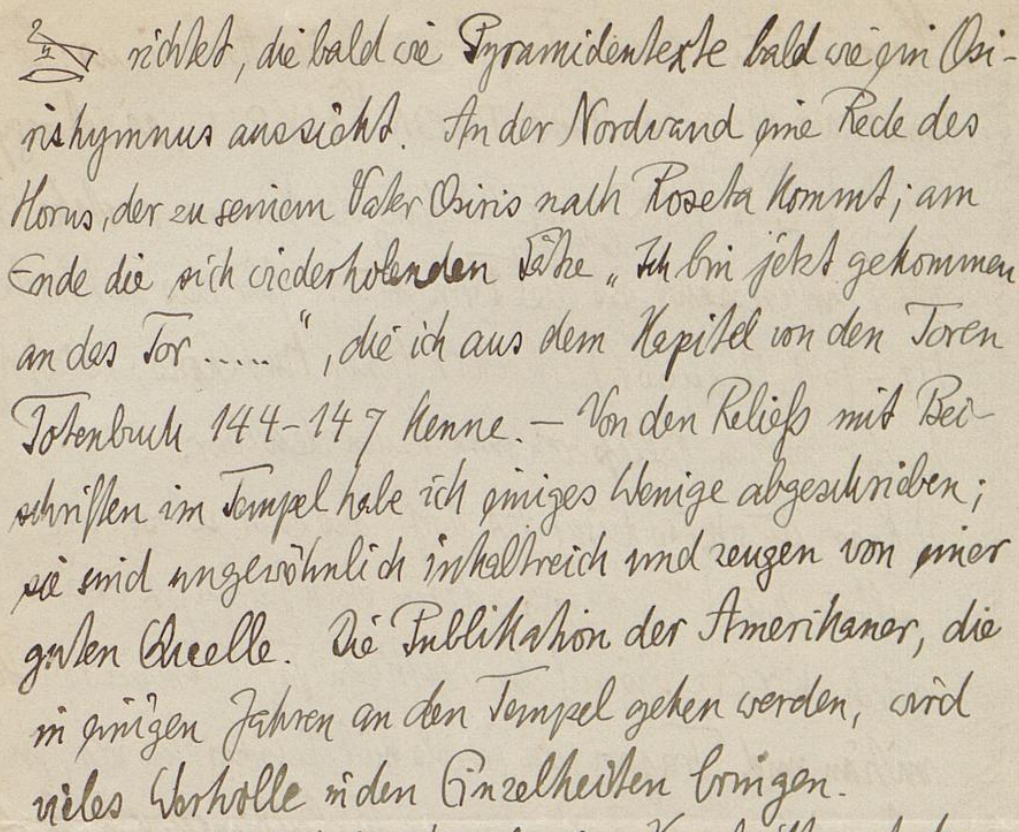 richtet, die bald wie Pyramidentexte bald wie ein Osi-
rishymnus aussieht. An der Nordwand eine Rede des
Horus, der zu seinem Vater Osiris nach Roseta kommt; am
Ende die sich wiederholenden Sätze „Ich bin jetzt gekommen
an das Tor ..... “, die ich aus dem Kapitel von den Toren
Totenbuch 144-147 kenne. – Von den Reliefs mit Bei-
schriften im Tempel habe ich einiges Wenige abgeschrieben;
sie sind ungewöhnlich inhaltreich und zeugen von einer
guten Quelle. Die Publikation der Amerikaner, die
in einigen Jahren an den Tempel gehen werden, wird
vieles Wertvolle in den Einzelheiten bringen.